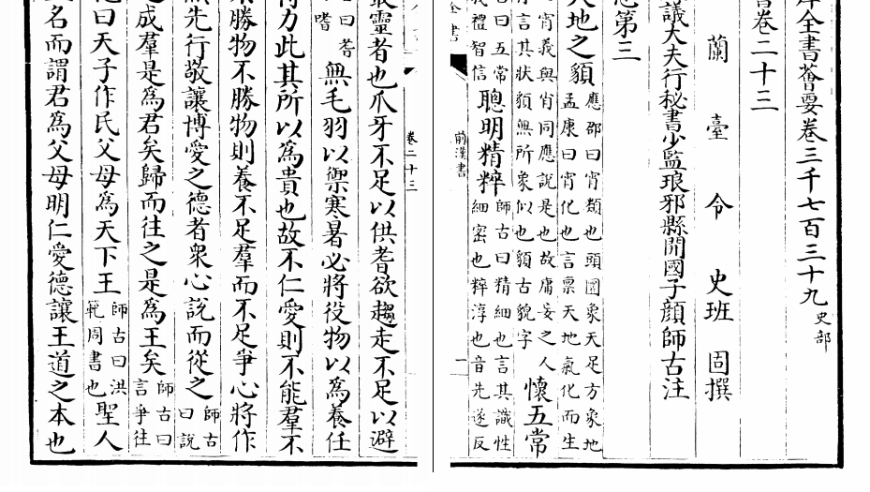 全書薈要卷三千七百三十九史部
書卷二十三
蘭臺令史班固撰
議大夫行秘書少監琅邪縣開國子顏師古注
志第三
天地之䫉應劭曰宵類也頭圜象天足方象地孟康曰宵化也言禀天地氣化而生
宵義與肖同應説是也故庸妄之人言其狀䫉無所象似也䫉古貌字懷五常
曰五常禮智信聰明精粹師古曰精細也言其識性細宻也粹淳也音先遂反
前漢書
卷二十三
靈者也爪牙不足以供耆欲趨走不足以避
曰耆嗜無毛羽以禦寒暑必將役物以為養任
力此其所以為貴也故不仁愛則不能羣不
勝物不勝物則養不足羣而不足爭心將作
先行敬讓博愛之德者衆心説而從之師古曰説
成羣是為君矣歸而往之是為王矣師古曰言爭往
曰天子作民父母為天下王師古曰洪範周書也聖人
名而謂君為父母明仁愛德讓王道之本也